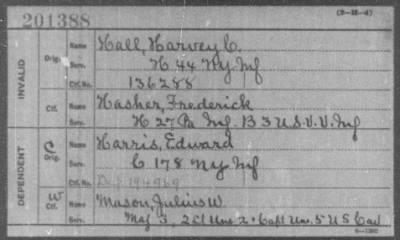 201388
(3-25-4)
INVALID
Orig. Name Hall, Harvey C.
Serv. H 44 NY. Inf
Ctf. No. 136288
Ctf. Name Hasher, Frederick
Serv. H 27 Pa Inf. B 3 U.S.V.V. Inf
DEPENDENT
C Orig. Name Harris, Edward
Serv. C 178 NY. Inf
Ctf. No. 194949
W Ctf. Name Mason, Julius W.
Serv. Maj 3, 2 Lt Capt 5" U S Cav
6-1380